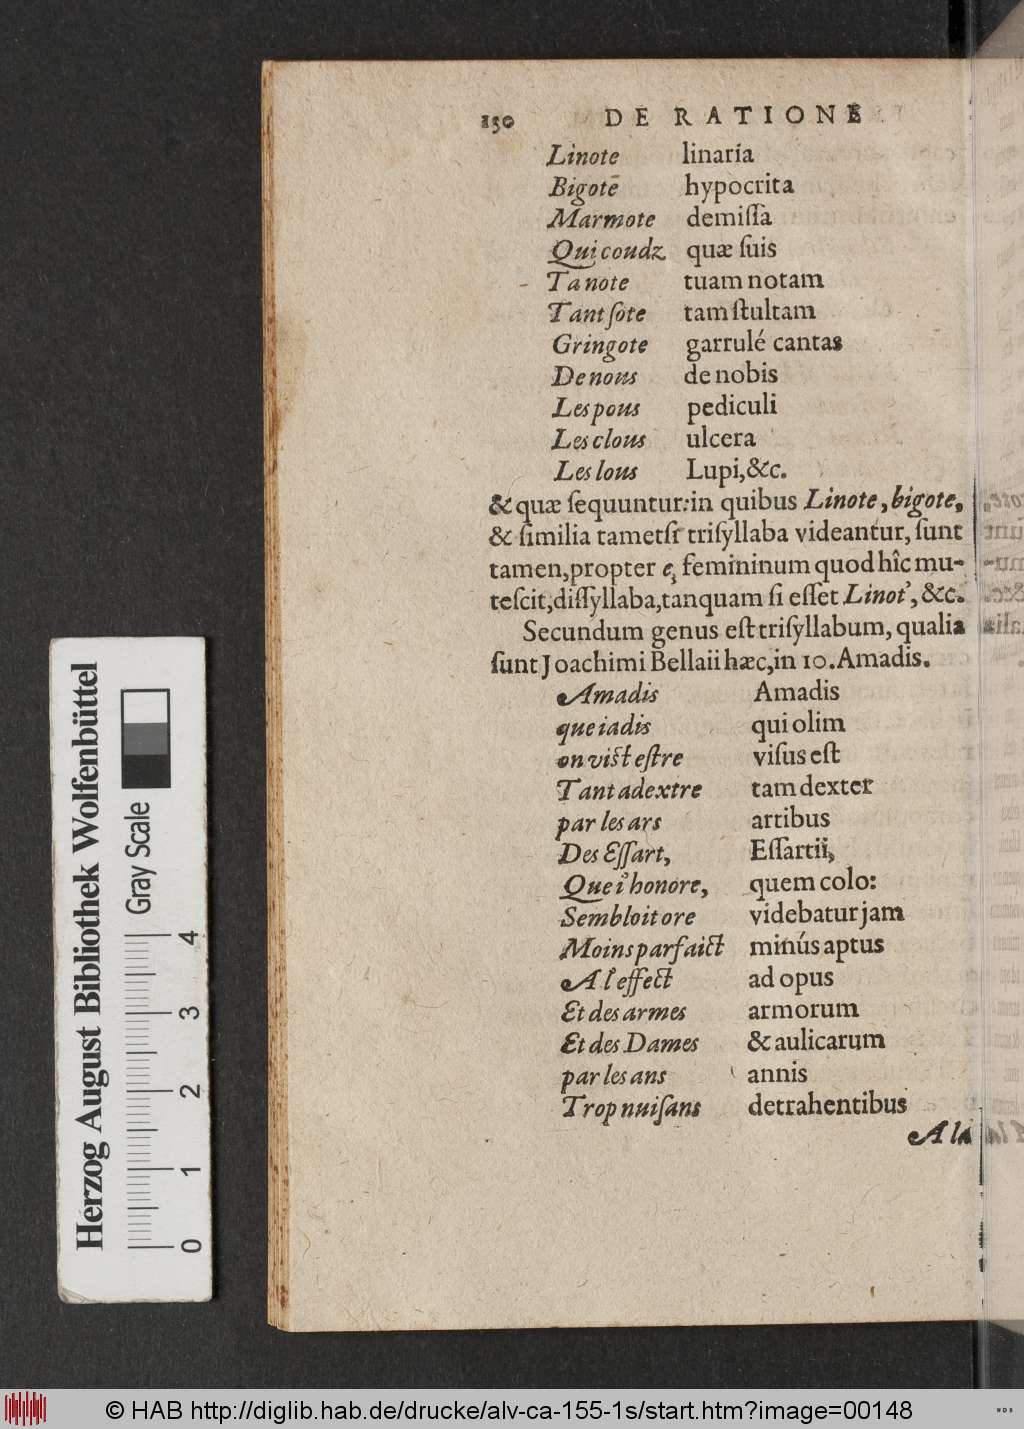 150 DE RATIONE
Linote linaria
Bigote hypocrita
Marmote demiſſa
Qui coudz quæ ſuis
Ta note tuam notam
Tant ſote tam ſtultam
Gringote garrulé cantas
De nous de nobis
Les pous pediculi
Les clous ulcera
Les lous Lupi, &c.
& quæ ſequuntur: in quibus Linote, bigote,
& ſimilia tametſi triſyllaba videantur, ſunt
tamen, propter ę, femininum quod hîc mu-
teſcit, diſſyllaba, tanquam ſi eſſet Linot', &c.
Secundum genus eſt triſyllabum, qualia
ſunt Joachimi Bellaii hæc, in 10. Amadis.
Amadis Amadis
que iadis qui olim
on viſt eſtre viſus eſt
Tant adextre tam dexter
par les ars artibus
Des Eſſart, Eſſartii,
Que i'honore, quem colo:
Sembloit ore videbatur jam
Moins parfaict minús aptus
A l'effect ad opus
Et des armes armorum
Et des Dames & aulicarum
par les ans annis
Trop nuiſans detrahentibus
A la
Herzog August Bibliothek Wolfenbüttel
Gray Scale
0 1 2 3 4
© HAB http://diglib.hab.de/drucke/alv-ca-155-1s/start.htm?image=00148